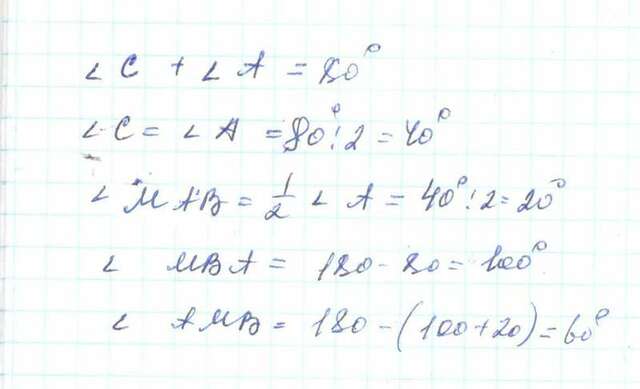 ∠ C + ∠ A = 80°
∠ C = ∠ A = 80° : 2 = 40°
∠ MAB = 1/2 ∠ A = 40° : 2 = 20°
∠ MBA = 180 - 80 = 100°
∠ AMB = 180 - (100 + 20) = 60°